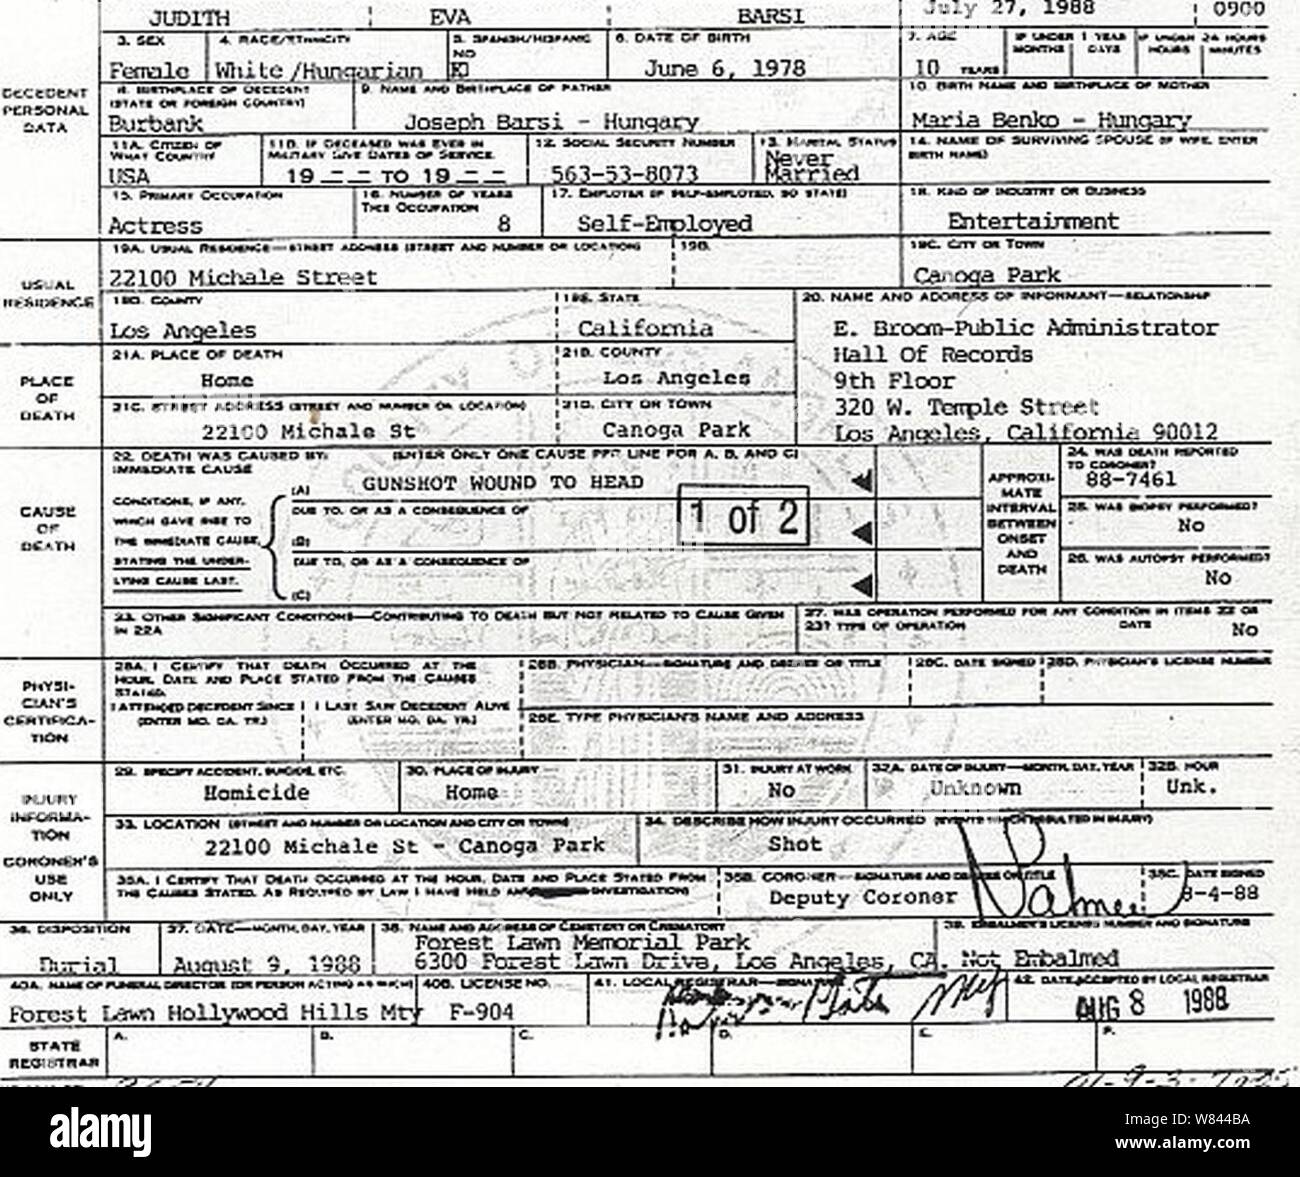 JUDITH EVA BARSI July 27, 1988 0900
3. SEX 4. RACE/ETHNICITY 5. SPANISH/HISPANIC 6. DATE OF BIRTH 7. AGE IF UNDER 1 YEAR IF UNDER 24 HOURS
NO MONTHS DAYS HOURS MINUTES
Female White/Hungarian June 6, 1978 10 YEARS
DECEDENT PERSONAL DATA
8. BIRTHPLACE OF DECEDENT (STATE OR FOREIGN COUNTRY) 9. NAME AND BIRTHPLACE OF FATHER 10. BIRTH NAME AND BIRTHPLACE OF MOTHER
Burbank Joseph Barsi - Hungary Maria Benko - Hungary
11A. CITIZEN OF WHAT COUNTRY 11B. IF DECEASED WAS EVER IN MILITARY GIVE DATES OF SERVICE 12. SOCIAL SECURITY NUMBER 13. MARITAL STATUS 14. NAME OF SURVIVING SPOUSE (IF WIFE, ENTER BIRTH NAME)
USA 19 -- TO 19 -- 563-53-8073 Never Married
15. PRIMARY OCCUPATION 16. NUMBER OF YEARS THIS OCCUPATION 17. EMPLOYER (IF SELF-EMPLOYED, SO STATE) 18. KIND OF INDUSTRY OR BUSINESS
Actress 8 Self-Employed Entertainment
USUAL RESIDENCE
19A. USUAL RESIDENCE—STREET ADDRESS (STREET AND NUMBER OR LOCATION) 19B. 19C. CITY OR TOWN
22100 Michale Street Canoga Park
19D. COUNTY 19E. STATE 20. NAME AND ADDRESS OF INFORMANT—RELATIONSHIP
Los Angeles California E. Broom-Public Administrator
Hall Of Records
9th Floor
320 W. Temple Street
Los Angeles, California 90012
PLACE OF DEATH
21A. PLACE OF DEATH 21B. COUNTY
Home Los Angeles
21C. STREET ADDRESS (STREET AND NUMBER OR LOCATION) 21D. CITY OR TOWN
22100 Michale St Canoga Park
CAUSE OF DEATH
22. DEATH WAS CAUSED BY: (ENTER ONLY ONE CAUSE PER LINE FOR A, B, AND C)
IMMEDIATE CAUSE
(A) GUNSHOT WOUND TO HEAD
CONDITIONS, IF ANY,
WHICH GAVE RISE TO
THE IMMEDIATE CAUSE,
STATING THE UNDER-
LYING CAUSE LAST.
DUE TO, OR AS A CONSEQUENCE OF
(B)
DUE TO, OR AS A CONSEQUENCE OF
(C)
1 of 2
APPROXI-
MATE
INTERVAL
BETWEEN
ONSET
AND
DEATH
24. WAS DEATH REPORTED TO CORONER?
88-7461
25. WAS BIOPSY PERFORMED?
No
26. WAS AUTOPSY PERFORMED?
No
23. OTHER SIGNIFICANT CONDITIONS—CONTRIBUTING TO DEATH BUT NOT RELATED TO CAUSE GIVEN IN 22A
27. WAS OPERATION PERFORMED FOR ANY CONDITION IN ITEMS 22 OR 23? TYPE OF OPERATION DATE
No
PHYSI-
CIAN'S
CERTIFICA-
TION
28A. I CERTIFY THAT DEATH OCCURRED AT THE HOUR, DATE AND PLACE STATED FROM THE CAUSES STATED.
I ATTENDED DECEDENT SINCE (ENTER MO. DA. YR.) I LAST SAW DECEDENT ALIVE (ENTER MO. DA. YR.)
28B. PHYSICIAN—SIGNATURE AND DEGREE OR TITLE 28C. DATE SIGNED 28D. PHYSICIAN'S LICENSE NUMBER
28E. TYPE PHYSICIAN'S NAME AND ADDRESS
INJURY
INFORMA-
TION
CORONER'S
USE
ONLY
29. SPECIFY ACCIDENT, SUICIDE, ETC. 30. PLACE OF INJURY 31. INJURY AT WORK 32A. DATE OF INJURY—MONTH, DAY, YEAR 32B. HOUR
Homicide Home No Unknown Unk.
33. LOCATION (STREET AND NUMBER OR LOCATION AND CITY OR TOWN) 34. DESCRIBE HOW INJURY OCCURRED (EVENTS WHICH RESULTED IN INJURY)
22100 Michale St - Canoga Park Shot
35A. I CERTIFY THAT DEATH OCCURRED AT THE HOUR, DATE AND PLACE STATED FROM THE CAUSES STATED, AS REQUIRED BY LAW I HAVE HELD AN INVESTIGATION)
35B. CORONER—SIGNATURE AND DEGREE OR TITLE 35C. DATE SIGNED
Deputy Coroner 8-4-88
36. DISPOSITION 37. DATE—MONTH, DAY, YEAR 38. NAME AND ADDRESS OF CEMETERY OR CREMATORY 39. EMBALMER'S LICENSE NUMBER AND SIGNATURE
Burial August 9, 1988 Forest Lawn Memorial Park
6300 Forest Lawn Drive, Los Angeles, CA. Not Embalmed
40A. NAME OF FUNERAL DIRECTOR (OR PERSON ACTING AS SUCH) 40B. LICENSE NO. 41. LOCAL REGISTRAR—SIGNATURE 42. DATE ACCEPTED BY LOCAL REGISTRAR
Forest Lawn Hollywood Hills Mty F-904 AUG 8 1988
STATE REGISTRAR
A. B. C. D. E. F.
alamy
Image ID: W844BA
www.alamy.com